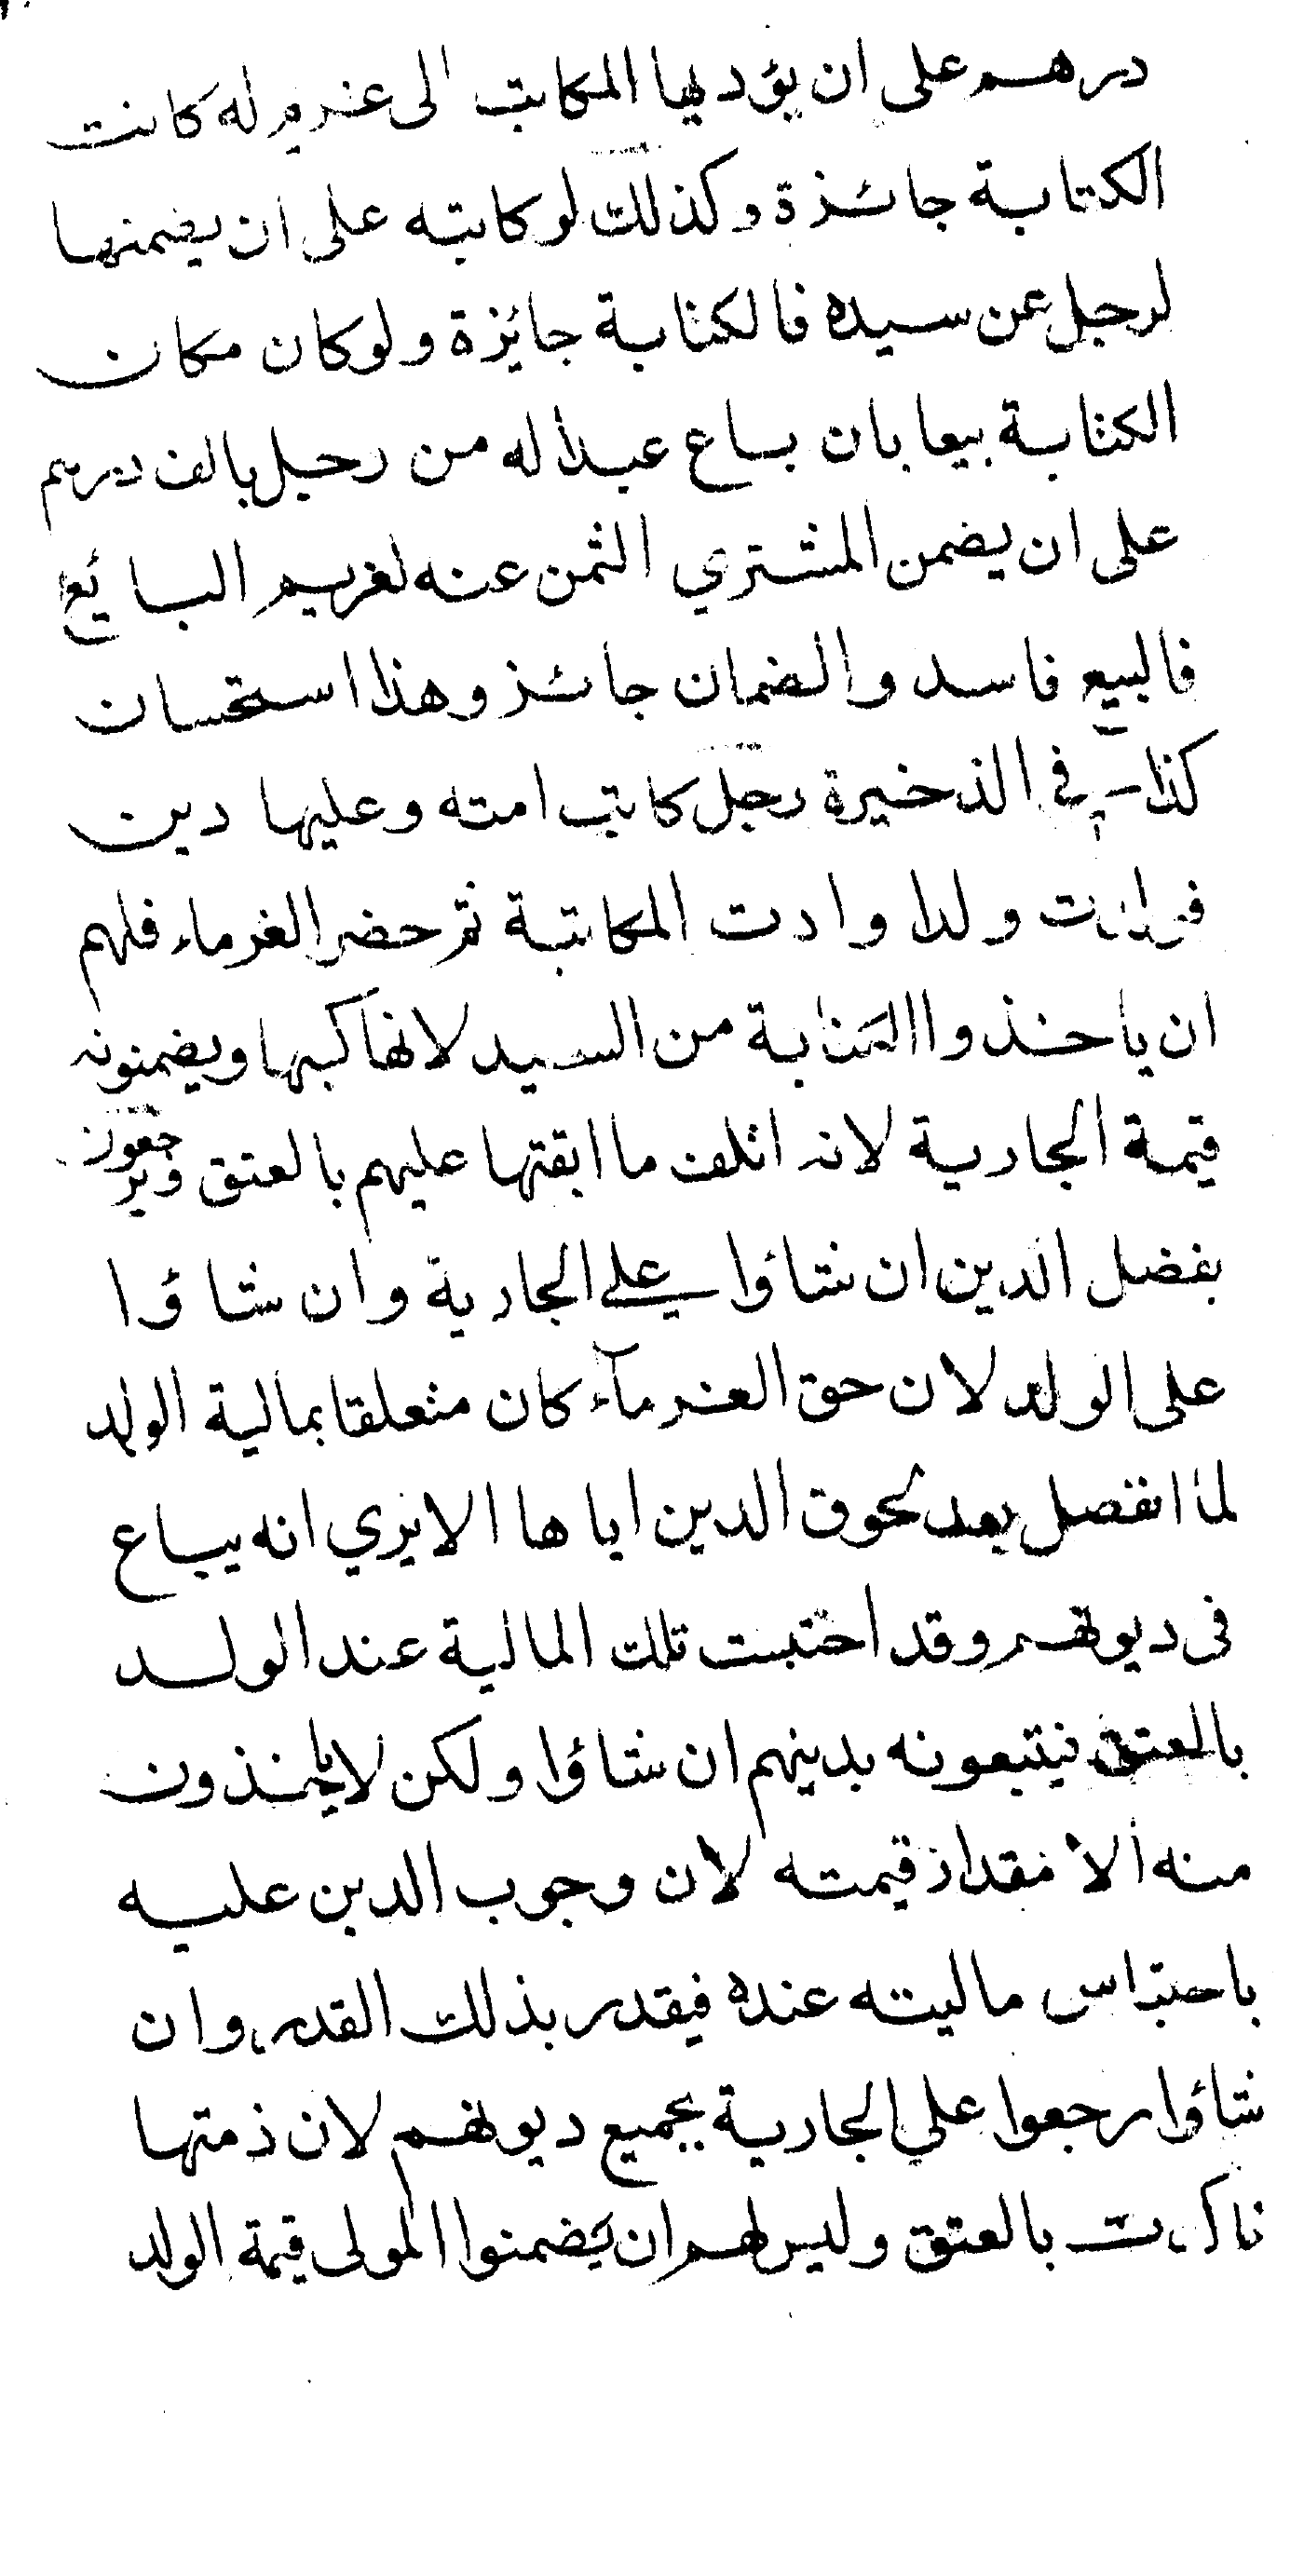 درهم على ان يؤديها المكاتب الى غريم له كانت
الكتابة جائزة وكذلك لو كاتبه على ان يضمنها
لرجل عن سيده فالكتابة جايزة ولو كان مكان
الكتابة بيعا بان باع عبدا له من رجل بالف درهم
على ان يضمن المشتري الثمن عنه لغريم البائع
فالبيع فاسد والضمان جائز وهذا استحسان
كذا فى الذخيرة رجل كاتب امته وعليها دين
فولدت ولدا وادت المكاتبة ثم حضر الغرماء فلهم
ان ياخذوا الكتابة من السيد لانها كسبها ويضمنونه
قيمة الجارية لانه اتلف ماليتها عليهم بالعتق ويرجعون
بفضل الدين ان شاؤا على الجارية وان شاؤا
على الولد لان حق الغرمآء كان متعلقا بمالية الولد
لما انفصل بعد لحوق الدين اياها الا يري انه يباع
فى ديونهم وقد احتبست تلك المالية عند الولد
بالعتق فيتبعونه بدينهم ان شاؤا ولكن لا ياخذون
منه الا مقدار قيمته لان وجوب الدين عليه
باحتباس ماليته عنده فيقدر بذلك القدر وان
شاؤا رجعوا علي الجارية بجميع ديونهم لان ذمتها
تاكدت بالعتق وليس لهم ان يضمنوا المولى قيمة الولد